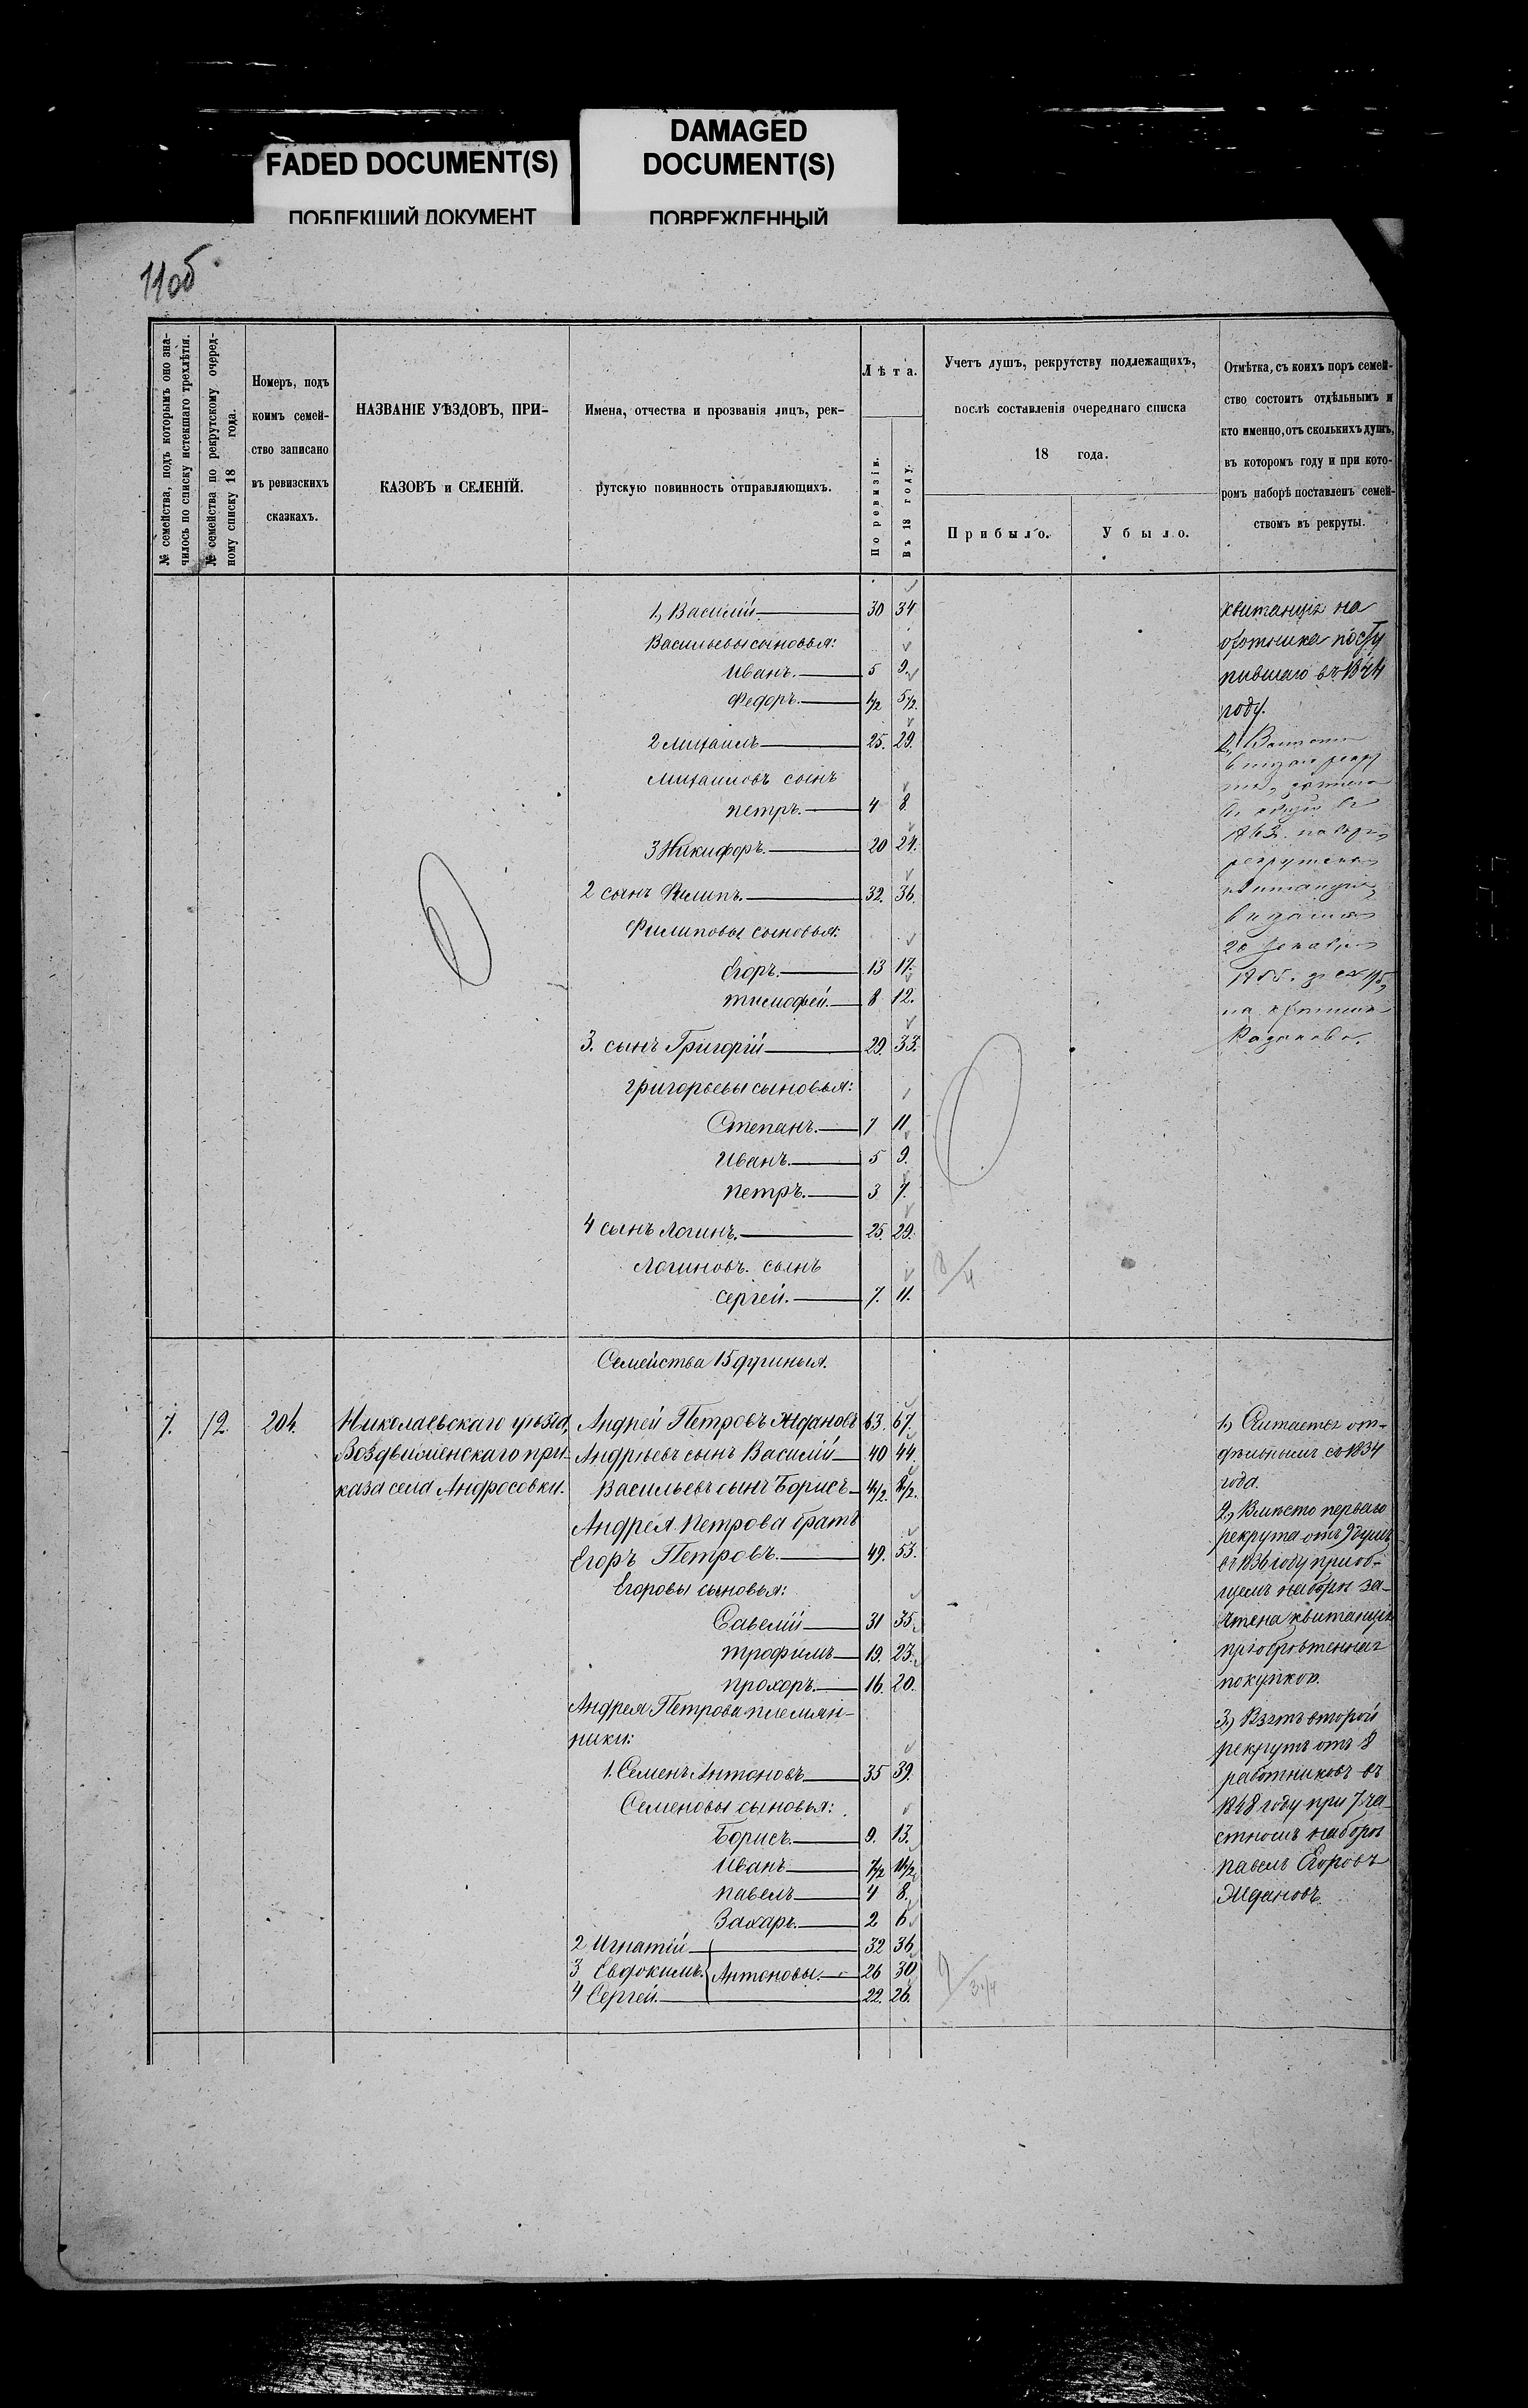 FADED DOCUMENT(S)
ПОБЛЕКШИЙ ДОКУМЕНТ
DAMAGED
DOCUMENT(S)
ПОВРЕЖДЕННЫЙ
11об
№ семейства, подъ которымъ оно зна-
чилось по списку истекшаго трехлѣтія.
№ семейства по рекрутскому очеред-
ному списку 18 года.
Номеръ, подъ
коимъ семей-
ство записано
въ ревизскихъ
сказкахъ.
НАЗВАНІЕ УѢЗДОВЪ, ПРИ-
КАЗОВЪ и СЕЛЕНІЙ.
Имена, отчества и прозванія лицъ, рек-
рутскую повинность отправляющихъ.
Лѣта.
По ревизіи.
Въ 18 году.
Учетъ душъ, рекрутству подлежащихъ,
послѣ составленія очереднаго списка
18 года.
Прибыло.
Убыло.
Отмѣтка, съ коихъ поръ семей-
ство состоитъ отдѣльнымъ и
кто именно, отъ сколькихъ душъ,
въ которомъ году и при кото-
ромъ наборѣ поставленъ семей-
ствомъ въ рекруты.
1, Василій 30 34
Васильевы сыновья:
Иванъ. 5 9.
Федоръ. 1/2 5 1/2.
2 Михаилъ 25. 29.
Михаиловъ сынъ
Петръ. 4 8.
3 Никифоръ. 20 24.
2 сынъ Филипъ. 32. 36.
Филиповы сыновья:
Егоръ. 13 17.
Тимофей. 8 12.
3. сынъ Григорій 29. 33.
Григорьевы сыновья:
Степанъ. 7 11
Иванъ. 5 9.
Петръ. 3 7.
4 сынъ Логинъ. 25. 29.
Логиновъ. сынъ
Сергей. 7. 11.
8/4
квитанція на
охотника посту
пившаго въ 1844
году.
2,
1863.
20
1855.
на
Казакова.
Семейства 15 душныя.
7. 12. 204.
Николаевскаго уѣзда,
Воздвиженскаго при-
каза села Андросовки.
Андрей Петровъ Ждановъ 63. 67.
Андрѣевъ сынъ Василій 40 44.
Васильевъ сынъ Борисъ 4 1/2. 8 1/2.
Андрея Петрова братъ
Егоръ Петровъ. 49. 53.
Егоровы сыновья:
Савелій 31 35.
Трофимъ 19. 23.
Прохоръ. 16. 20.
Андрея Петрова племян-
ники:
1. Семенъ Антоновъ 35 39.
Семеновы сыновья:
Борисъ. 9. 13.
Иванъ 7 1/2 11 1/2
Павелъ 4 8.
Захаръ. 2 6
2 Игнатій 32 36
3 Евдокимъ. Антоновы. 26 30
4 Сергей. 22. 26.
9/3 3/4
1, Считается от-
дѣльнымъ съ 1834
года.
2, Вмѣсто перваго
рекрута отъ 9 душъ
въ 1836 году при об-
щемъ наборѣ за-
чтена квитанція
пріобрѣтенная
покупкою.
3, Взятъ второй
рекрутъ отъ 8
работниковъ въ
1848 году при 7 ча-
стномъ наборѣ
Павелъ Егоровъ
Ждановъ.